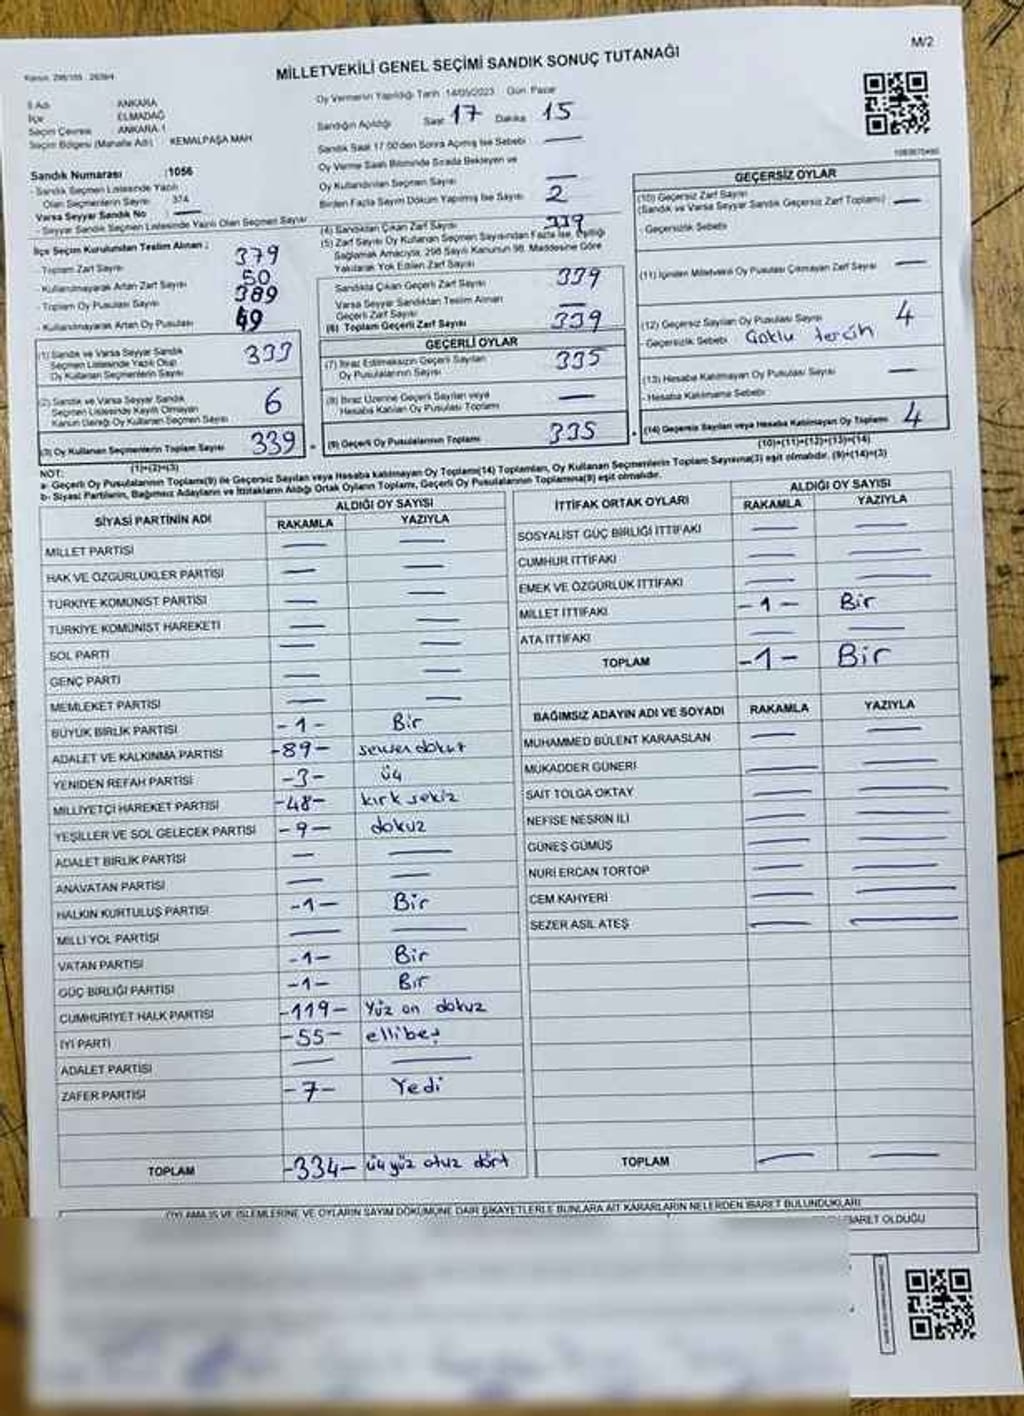 M/2
MİLLETVEKİLİ GENEL SEÇİMİ SANDIK SONUÇ TUTANAĞI
İl Adı ANKARA
İlçe ELMADAĞ
Seçim Çevresi ANKARA 1
Seçim Bölgesi (Mahalle Adı) KEMALPAŞA MAH
Sandık Numarası :1056
- Sandık Seçmen Listesinde Yazılı
Olan Seçmenlerin Sayısı 374
Varsa Seyyar Sandık No —
- Seyyar Sandık Seçmen Listesinde Yazılı Olan Seçmen Sayısı
Oy Vermenin Yapıldığı Tarih :14/05/2023 Gün: Pazar
Sandığın Açıldığı Saat 17 Dakika 15
Sandık Saat 17:00'den Sonra Açılmış İse Sebebi —
Oy Verme Saati Bitiminde Sırada Bekleyen ve
Oy Kullandırılan Seçmen Sayısı —
Birden Fazla Sayım Döküm Yapılmış İse Sayısı 2
İlçe Seçim Kurulundan Teslim Alınan :
- Toplam Zarf Sayısı 379
- Kullanılmayarak Artan Zarf Sayısı 50
- Toplam Oy Pusulası Sayısı 389
- Kullanılmayarak Artan Oy Pusulası 49
(1) Sandık ve Varsa Seyyar Sandık
Seçmen Listesinde Yazılı Olup
Oy Kullanan Seçmenlerin Sayısı 333
(2) Sandık ve Varsa Seyyar Sandık
Seçmen Listesinde Kayıtlı Olmayan
Kanun Gereği Oy Kullanan Seçmen Sayısı 6
(3) Oy Kullanan Seçmenlerin Toplam Sayısı 339
(1)+(2)=(3)
(4) Sandıktan Çıkan Zarf Sayısı 339
(5) Zarf Sayısı Oy Kullanan Seçmen Sayısından Fazla İse, Eşitliği
Sağlamak Amacıyla, 298 Sayılı Kanunun 98. Maddesine Göre
Yakılarak Yok Edilen Zarf Sayısı
Sandıkta Çıkan Geçerli Zarf Sayısı 339
Varsa Seyyar Sandıktan Teslim Alınan
Geçerli Zarf Sayısı —
(6) Toplam Geçerli Zarf Sayısı 339
GEÇERLİ OYLAR
(7) İtiraz Edilmeksizin Geçerli Sayılan
Oy Pusulalarının Sayısı 335
(8) İtiraz Üzerine Geçerli Sayılan veya
Hesaba Katılan Oy Pusulası Toplamı —
(9) Geçerli Oy Pusulalarının Toplamı 335
GEÇERSİZ OYLAR
(10) Geçersiz Zarf Sayısı
(Sandık ve Varsa Seyyar Sandık Geçersiz Zarf Toplamı) —
- Geçersizlik Sebebi
(11) İçinden Milletvekili Oy Pusulası Çıkmayan Zarf Sayısı —
(12) Geçersiz Sayılan Oy Pusulası Sayısı 4
- Geçersizlik Sebebi Çoklu tercih
(13) Hesaba Katılmayan Oy Pusulası Sayısı —
- Hesaba Katılmama Sebebi
(14) Geçersiz Sayılan veya Hesaba Katılmayan Oy Toplamı 4
(10)+(11)+(12)+(13)=(14)
NOT:
a- Geçerli Oy Pusulalarının Toplamı(9) ile Geçersiz Sayılan veya Hesaba katılmayan Oy Toplamı(14) Toplamları, Oy Kullanan Seçmenlerin Toplam Sayısına(3) eşit olmalıdır. (9)+(14)=(3)
b- Siyasi Partilerin, Bağımsız Adayların ve İttifakların Aldığı Ortak Oyların Toplamı, Geçerli Oy Pusulalarının Toplamına(9) eşit olmalıdır.
SİYASİ PARTİNİN ADI ALDIĞI OY SAYISI
RAKAMLA YAZIYLA
MİLLET PARTİSİ — —
HAK VE ÖZGÜRLÜKLER PARTİSİ — —
TÜRKİYE KOMÜNİST PARTİSİ — —
TÜRKİYE KOMÜNİST HAREKETİ — —
SOL PARTİ — —
GENÇ PARTİ — —
MEMLEKET PARTİSİ — —
BÜYÜK BİRLİK PARTİSİ -1- Bir
ADALET VE KALKINMA PARTİSİ -89- seksen dokuz
YENİDEN REFAH PARTİSİ -3- üç
MİLLİYETÇİ HAREKET PARTİSİ -48- kırk sekiz
YEŞİLLER VE SOL GELECEK PARTİSİ -9- dokuz
ADALET BİRLİK PARTİSİ — —
ANAVATAN PARTİSİ — —
HALKIN KURTULUŞ PARTİSİ -1- Bir
MİLLİ YOL PARTİSİ — —
VATAN PARTİSİ -1- Bir
GÜÇ BİRLİĞİ PARTİSİ -1- Bir
CUMHURİYET HALK PARTİSİ -119- Yüz on dokuz
İYİ PARTİ -55- ellibeş
ADALET PARTİSİ — —
ZAFER PARTİSİ -7- Yedi
TOPLAM -334- üçyüz otuz dört
İTTİFAK ORTAK OYLARI ALDIĞI OY SAYISI
RAKAMLA YAZIYLA
SOSYALİST GÜÇ BİRLİĞİ İTTİFAKI — —
CUMHUR İTTİFAKI — —
EMEK VE ÖZGÜRLÜK İTTİFAKI — —
MİLLET İTTİFAKI -1- Bir
ATA İTTİFAKI — —
TOPLAM -1- Bir
BAĞIMSIZ ADAYIN ADI VE SOYADI RAKAMLA YAZIYLA
MUHAMMED BÜLENT KARAASLAN — —
MUKADDER GÜNERİ — —
SAİT TOLGA OKTAY — —
NEFİSE NESRİN İLİ — —
GÜNEŞ GÜMÜŞ — —
NURİ ERCAN TORTOP — —
CEM KAHYERİ — —
SEZER ASIL ATEŞ — —
TOPLAM — —
OYLAMA İŞ VE İŞLEMLERİNE VE OYLARIN SAYIM DÖKÜMÜNE DAİR ŞİKAYETLERLE BUNLARA AİT KARARLARIN NELERDEN İBARET BULUNDUKLARI
İBARET OLDUĞU